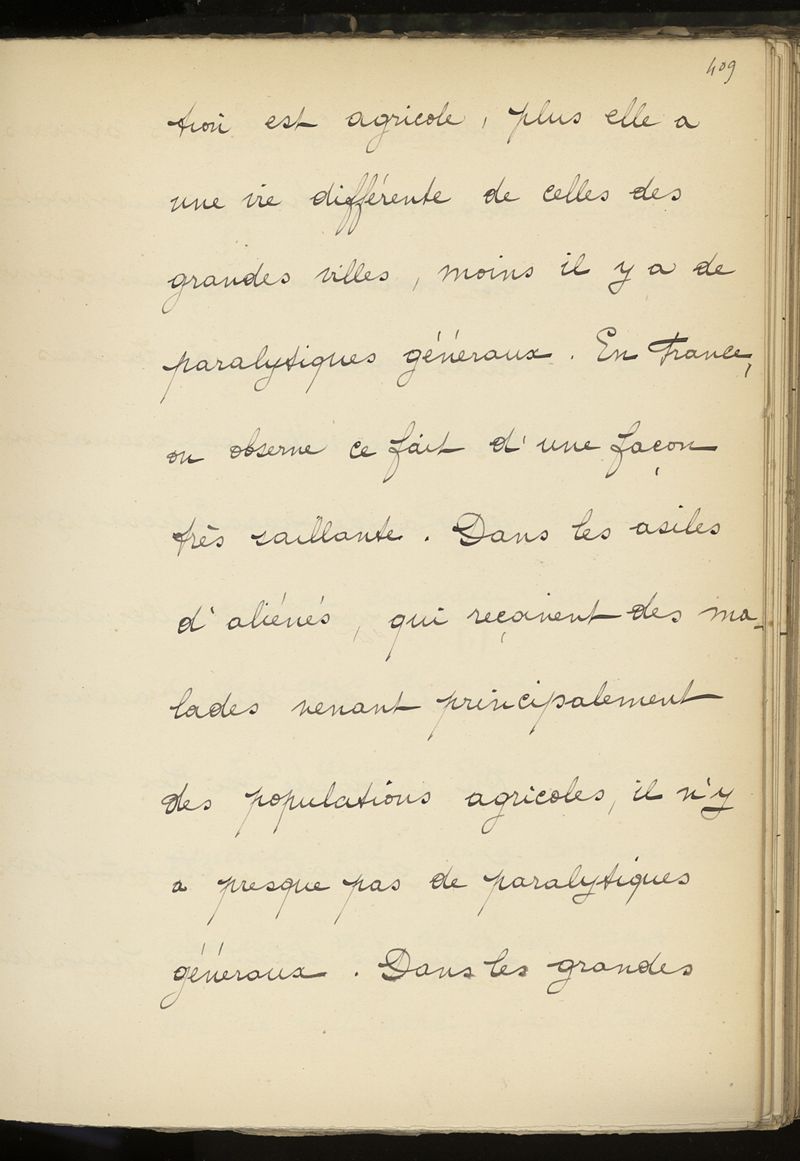 409
tion est agricole, plus elle a
une vie différente de celles des
grandes villes, moins il y a de
paralytiques généraux. En France,
on observe ce fait d'une façon
très saillante. Dans les asiles
d'aliénés, qui reçoivent des ma-
lades venant principalement
des populations agricoles, il n'y
a presque pas de paralytiques
généraux. Dans les grandes